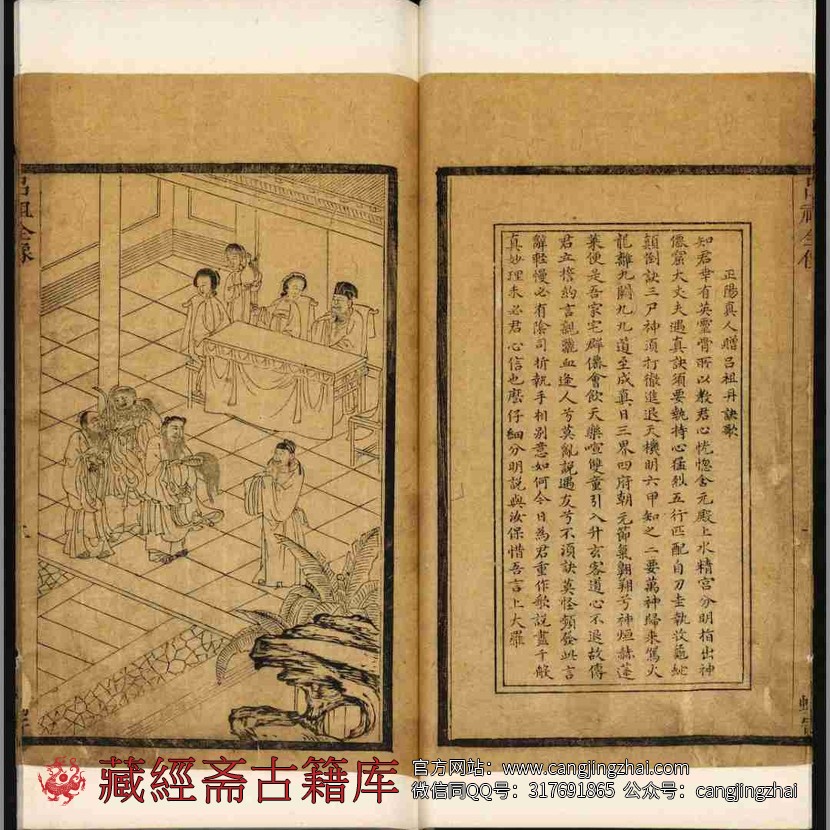 正陽真人贈呂祖丹訣歌
知君幸有英靈骨所以教君心恍惚含元殿上水精宮分明指出神
僊窟大丈夫遇真訣須要執持心猛烈五行匹配自刀圭執取龜蛇
顛倒訣三尸神須打徹進退天機明六甲知之二要萬神歸來駕火
龍離九闕九九道至成真日三界四府朝元節氣翱翔兮神烜赫蓬
萊便是吾家宅群僊會飲天樂喧雙童引入升玄客道心不退故傳
君立誓約言親灑血逢人兮莫亂說遇友兮不須訣莫怪頻發此言
辭輕慢必有陰司折執手相別意如何今日為君重作歌說盡千般
真妙理未必君心信也麼仔細分明說與汝保惜吾言上大羅
呂祖全像
藏經斋古籍库
官方网站：www.cangjingzhai.com
微信同QQ号：317691865 公众号：cangjingzhai